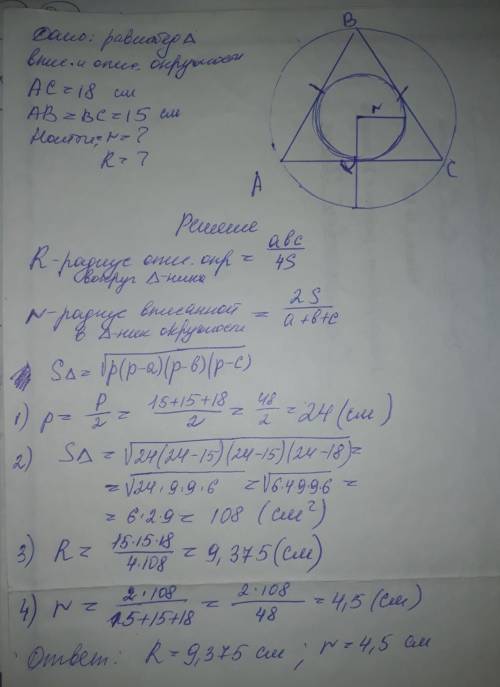 Дано: равнобед Δ
впис. и опис. окружности
AC = 18 см
AB = BC = 15 см
Найти: r = ?
R = ?
B
r
R
A
C
Решение
R - радиус опис. окр = abc/4S
вокруг Δ-ника
r - радиус вписанной = 2S/a+b+c
в Δ-ник окружности
SΔ = √p(p-a)(p-b)(p-c)
1) p = P/2 = 15+15+18/2 = 48/2 = 24 (см)
2) SΔ = √24(24-15)(24-15)(24-18) =
= √24·9·9·6 = √6·4·9·9·6 =
= 6·2·9 = 108 (см²)
3) R = 15·15·18/4·108 = 9,375 (см)
4) r = 2·108/15+15+18 = 2·108/48 = 4,5 (см)
Ответ: R = 9,375 см ; r = 4,5 см